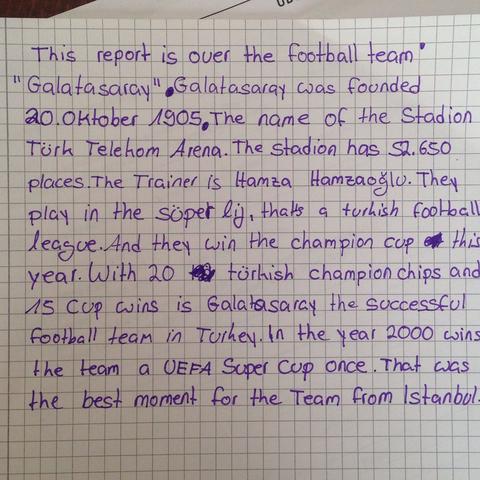 This report is over the football team"
"Galatasaray". Galatasaray was founded
20.Oktober 1905. The name of the Stadion
Türk Telekom Arena. The stadion has 52.650
places. The Trainer is Hamza Hamzaoğlu. They
play in the süper lij, thats a turkish football
league. And they win the champion cup this
year. With 20 türkish champion chips and
15 Cup wins is Galatasaray the successful
football team in Turkey. In the year 2000 wins
the team a UEFA Super Cup once. That was
the best moment for the Team from Istanbul.